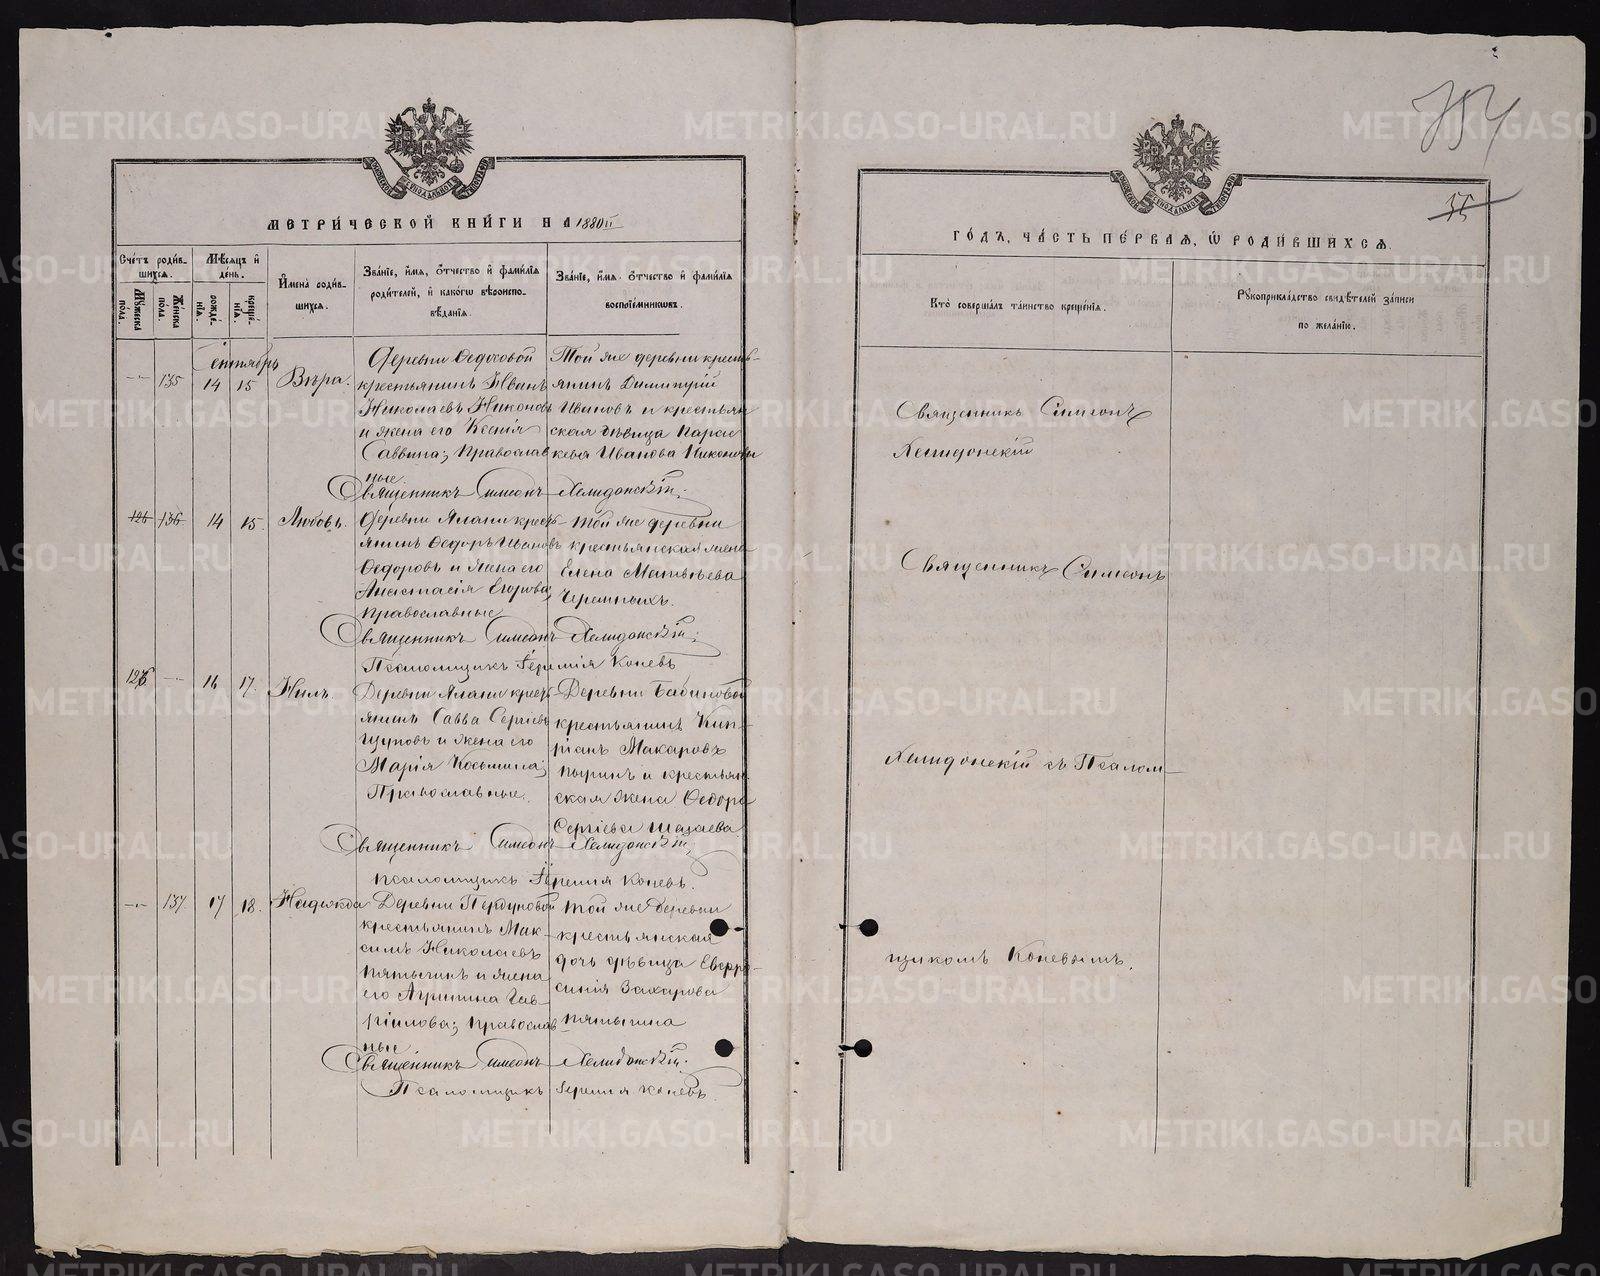 МЕТРИ́ЧЕСКОЙ КНИ́ГИ НА 1880й
Сче́тъ роди́в-
шихсѧ.
Мꙋ́жеска
по́ла.
Же́нска
по́ла.
Мѣ́сѧцъ и҆
де́нь.
рожде́-
нїѧ.
креще́-
нїѧ.
И҆мена̀ роди́в-
шихсѧ.
Зва́нїе, и҆́мѧ, ѻ҆́тчество и҆ фами́лїѧ
роди́телей, и҆ како́гѡ вѣроиспо-
вѣ́данїѧ.
Зва́нїе, и҆́мѧ, ѻ҆́тчество и҆ фами́лїѧ
воспрїе́мникѡвъ.
Сентябрь
135 14 15 Вѣра.
Деревни Федосовой
крестьянинъ Иванъ
Николаевъ Никоновъ
и жена его Ксенія
Саввина; Православ
ные.
Той же деревни кресть-
янинъ Димитрій
Ивановъ и крестьян
ская дѣвица Парас
кева Иванова Никоновы
Священникъ Симеонъ Хелидонскій;
126 136 14 15. Любовь.
Деревни Ялани кресть-
янинъ Ѳедоръ Ивановъ
Ѳедоровъ и жена его
Анастасія Егорова;
Православные
Той же деревни
крестьянская жена
Елена Матвѣева
Черемныхъ.
Священникъ Симеонъ Хелидонскій;
Псаломщикъ Іеремія Коневъ
126 16 17. Нилъ.
Деревни Ялани кресть-
янинъ Савва Сергіевъ
Щуповъ и жена его
Марія Косьмина;
Православные.
Деревни Бабиновой
крестьянинъ Кип-
ріанъ Макаровъ
Пыринъ и крестьян
ская жена Ѳедора
Сергіева
Священникъ Симеонъ Хелидонскій,
псаломщикъ Іеремія Коневъ.
137 17 18. Надежда
Деревни
крестьянинъ Мак-
симъ Николаевъ
Пятыгинъ и жена
его Агрипина Гав-
ріилова; Православ
ные
Той же деревни
крестьянская
дочь дѣвица Евфро-
синія Захарова
Пятыгина
Священникъ Симеонъ Хелидонскій.
Псаломщикъ Іеремія Коневъ.
754
ГО́ДЪ, ЧА́СТЬ ПЕ́РВАѦ, Ѡ҆ РОДИ́ВШИХСѦ.
Кто̀ соверша́лъ та́инство креще́нїѧ.
Рꙋкоприкла́дство свидѣ́телей за́писи
по жела́нїю.
Священникъ Симеонъ
Хелидонскій
Священникъ Симеонъ
Хелидонскій съ Псалом-
щикомъ Коневымъ.
METRIKI.GASO-URAL.RU